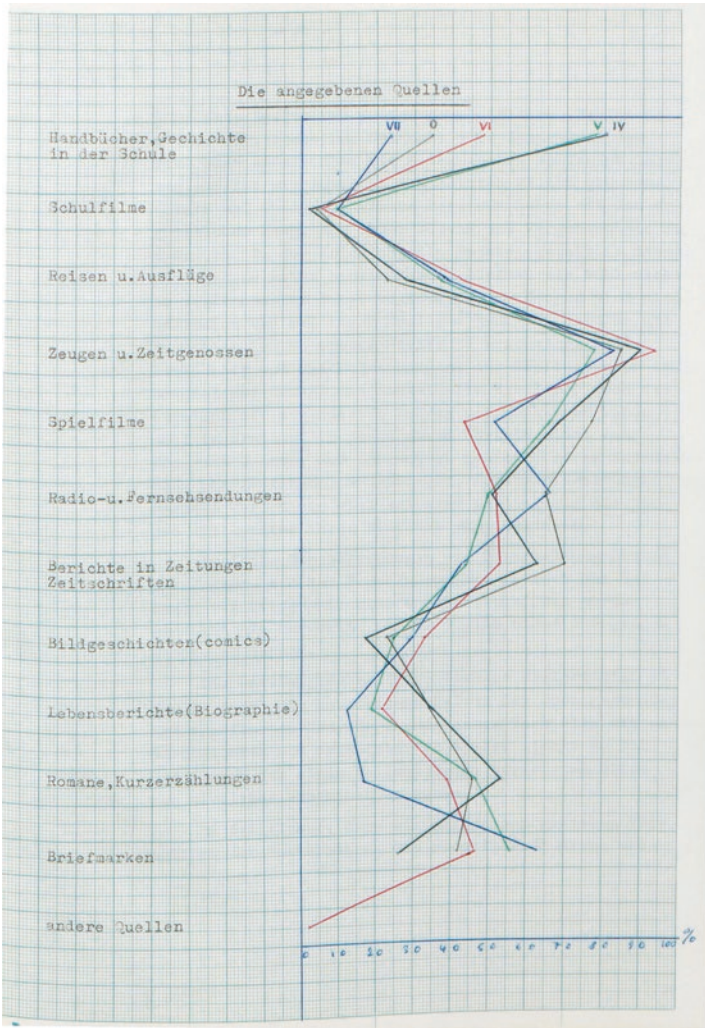 Die angegebenen Quellen
VII O VI V IV
Handbücher,Gechichte
in der Schule
Schulfilme
Reisen u.Ausflüge
Zeugen u.Zeitgenossen
Spielfilme
Radio-u.Fernsehsendungen
Berichte in Zeitungen
Zeitschriften
Bildgeschichten(comics)
Lebensberichte(Biographie)
Romane,Kurzerzählungen
Briefmarken
andere Quellen
0 10 20 30 40 50 60 70 80 90 100 %